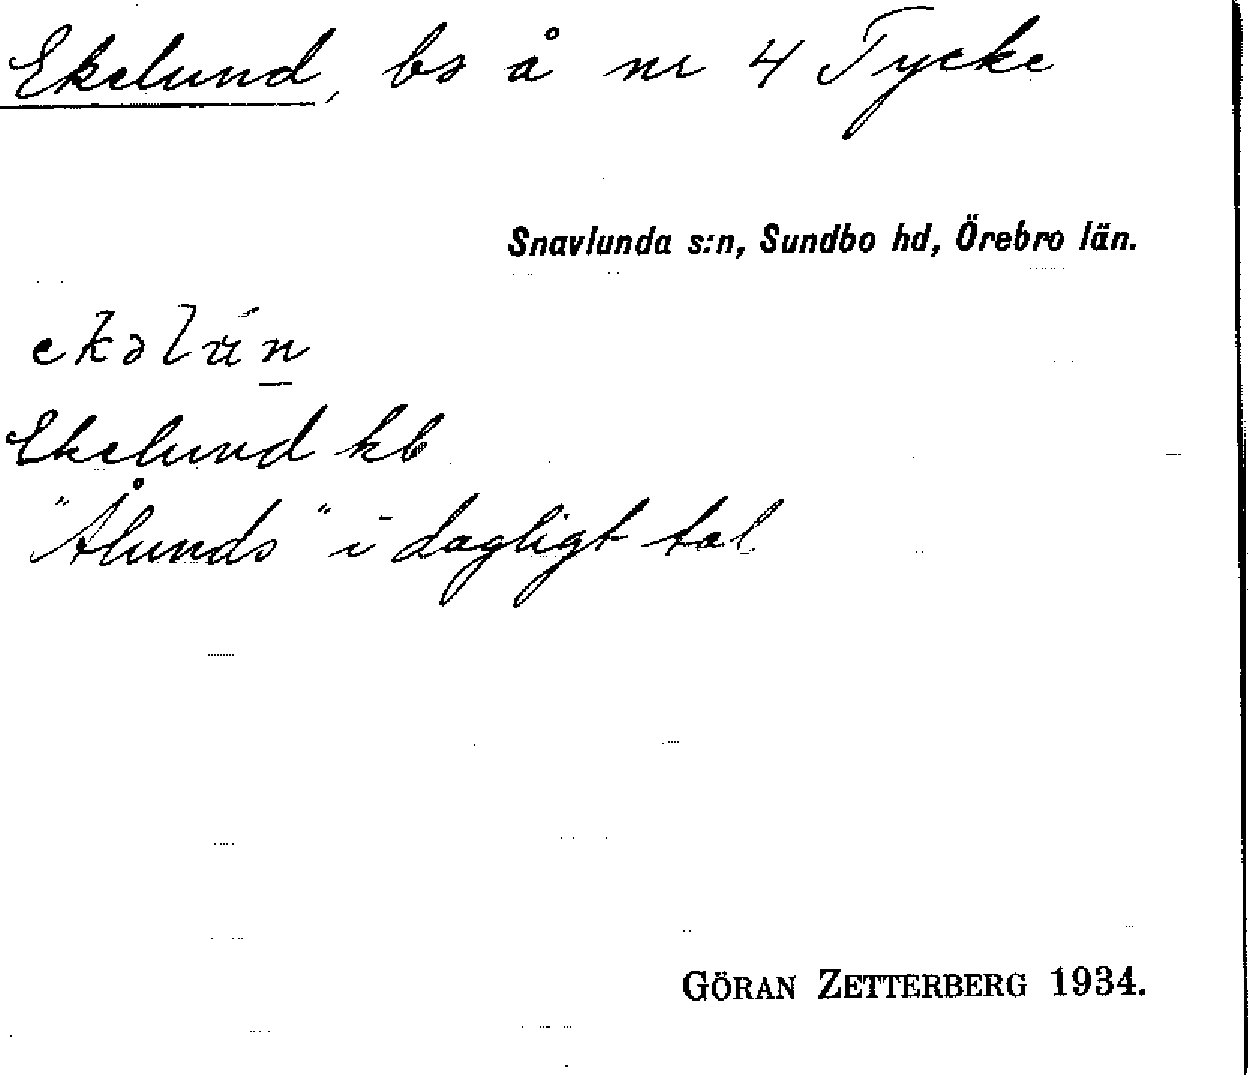 Ekelund, bs å nr 4 Tycke
Snavlunda s:n, Sundbo hd, Örebro län.
Ekelund kb
"Ålunds" i dagligt tal
GÖRAN ZETTERBERG 1934.